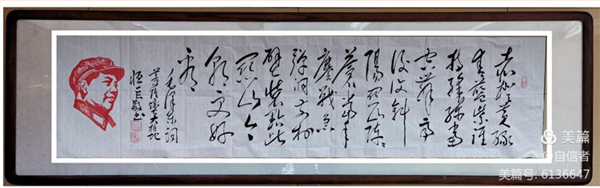 赤橙黄绿
青蓝紫谁
持彩练当
空舞雨
后复斜
陽关山阵
苍当年
鏖战急
弹洞前村
壁装点此
关山今
朝更好
看
毛泽东词
菩萨蛮大柏地
美篇
@自信者
美篇号: 6136647